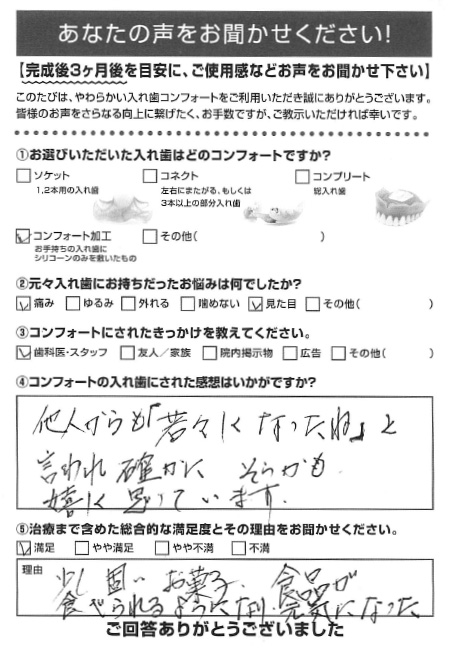 あなたの声をお聞かせください!
【完成後3ヶ月後を目安に、ご使用感などお声をお聞かせ下さい】
このたびは、やわらかい入れ歯コンフォートをご利用いただき誠にありがとうございます。
皆様のお声をさらなる向上に繋げたく、お手数ですが、ご教示いただければ幸いです。
①お選びいただいた入れ歯はどのコンフォートですか?
□ソケット □コネクト □コンプリート
1,2本用の入れ歯 左右にまたがる、もしくは 総入れ歯
3本以上の部分入れ歯
☑コンフォート加工 □その他( )
お手持ちの入れ歯に
シリコーンのみを敷いたもの
②元々入れ歯にお持ちだったお悩みは何でしたか?
☑痛み □ゆるみ □外れる □噛めない ☑見た目 □その他( )
③コンフォートにされたきっかけを教えてください。
☑歯科医・スタッフ □友人/家族 □院内掲示物 □広告 □その他( )
④コンフォートの入れ歯にされた感想はいかがですか?
他人からも「若々しくなったね」と
言われ確かに そちらも
嬉しく思っています.
⑤治療まで含めた総合的な満足度とその理由をお聞かせください。
☑満足 □やや満足 □やや不満 □不満
理由 少し固いお菓子、食品が
食べられるようになり、元気になった
ご回答ありがとうございました